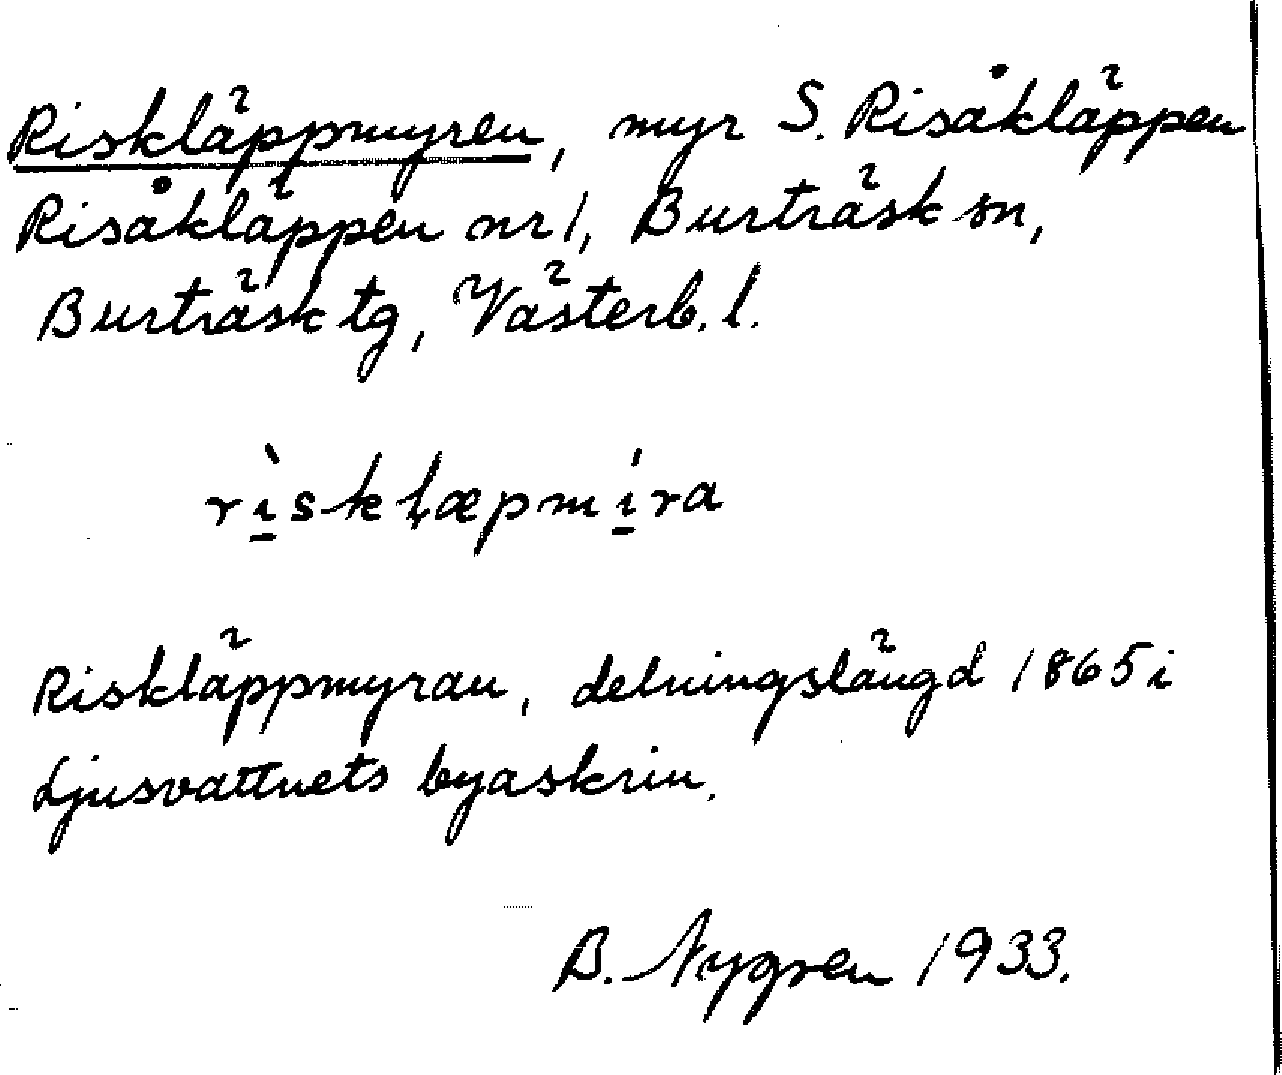 Riskläppmyren, myr S. Risåkläppen
Risåkläppen nr 1, Burträsk sn,
Burträsk tg, Västerb. l.
rı̱̀skḷæpmı̱́ra
Riskläppmyran, delningslängd 1865 i
Ljusvattnets byaskrin.
B. Nygren 1933.